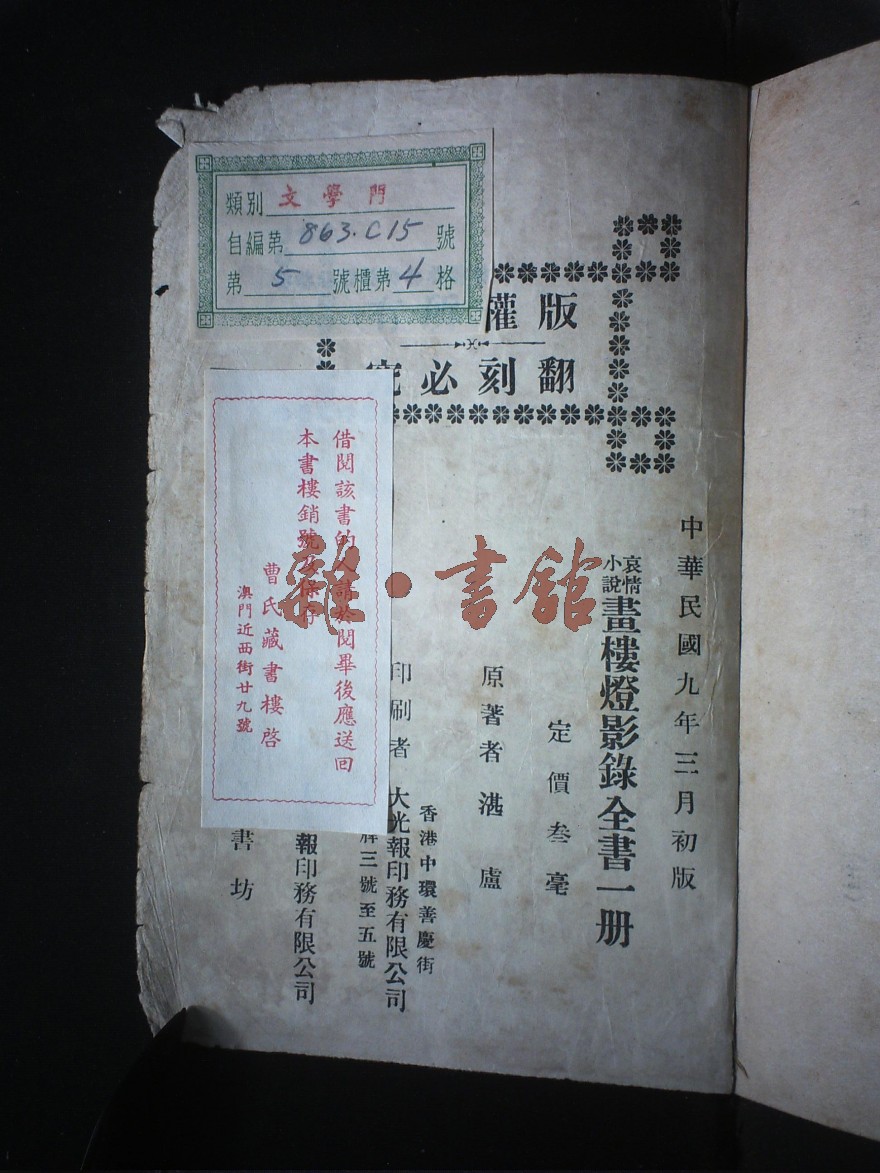 類別 文學門
自編第 863.C15 號
第 5 號櫃第 4 格
版權
翻刻必
中華民國九年三月初版
哀情小說 畫樓燈影錄全書一册
定價叁毫
原著者 湛盧
香港中環善慶街
印刷者 大光報印務有限公司
牌三號至五號
報印務有限公司
書坊
借閱該書的人請於閱畢後應送回
本書樓銷號及保存
曹氏藏書樓啓
澳門近西街廿九號
雜·書館